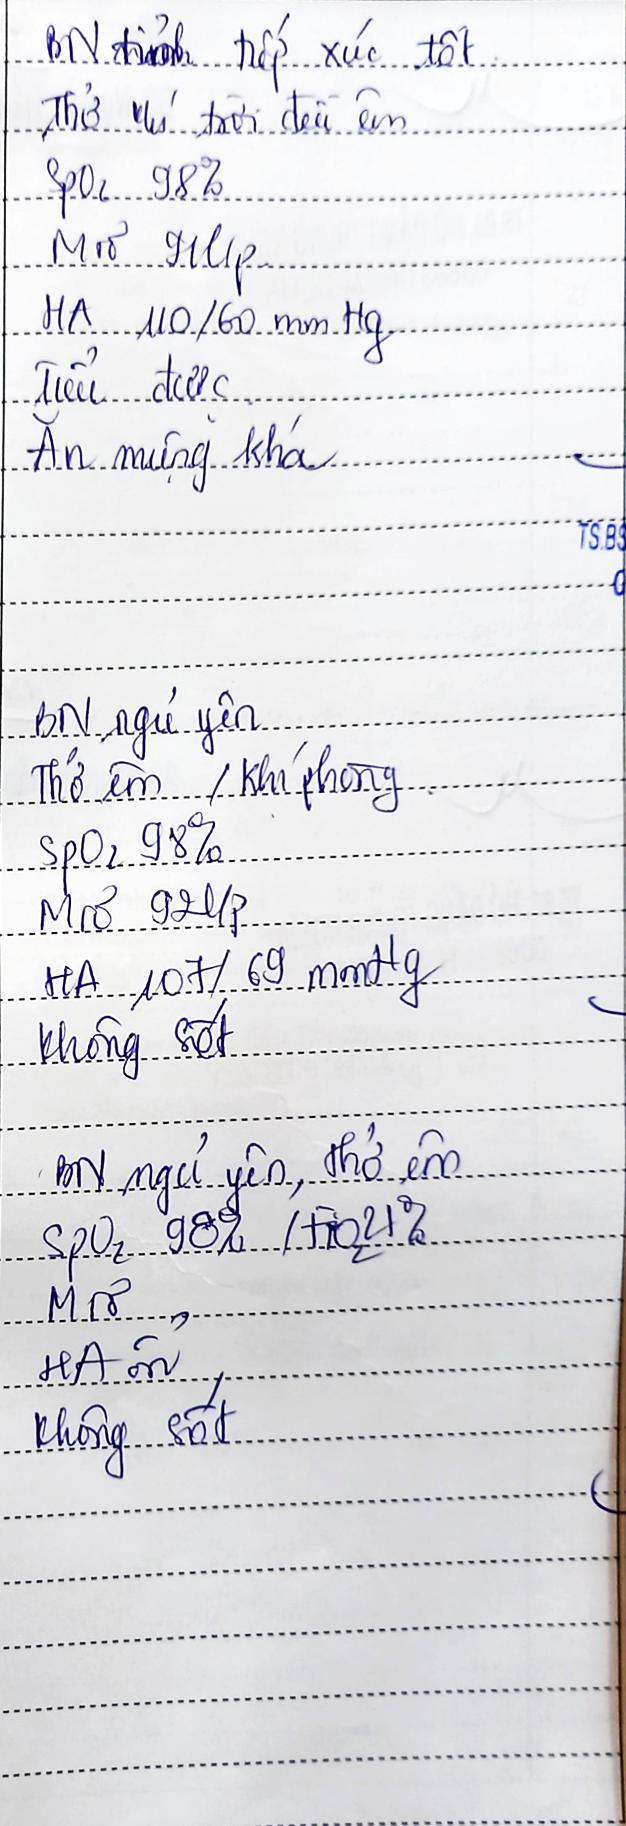 BN tỉnh tiếp xúc tốt
Thở khí trời đều êm
SpO2 98%
M rõ 91l/p
HA 110/60 mmHg
Tiểu được
Ăn miệng khá
TS.BS
BN ngủ yên
Thở êm / khí phòng
SpO2 98%
M rõ 92l/p
HA 107/69 mmHg
Không sốt
BN ngủ yên, thở êm
SpO2 98% / FiO2 21%
M rõ,
HA ổn
Không sốt